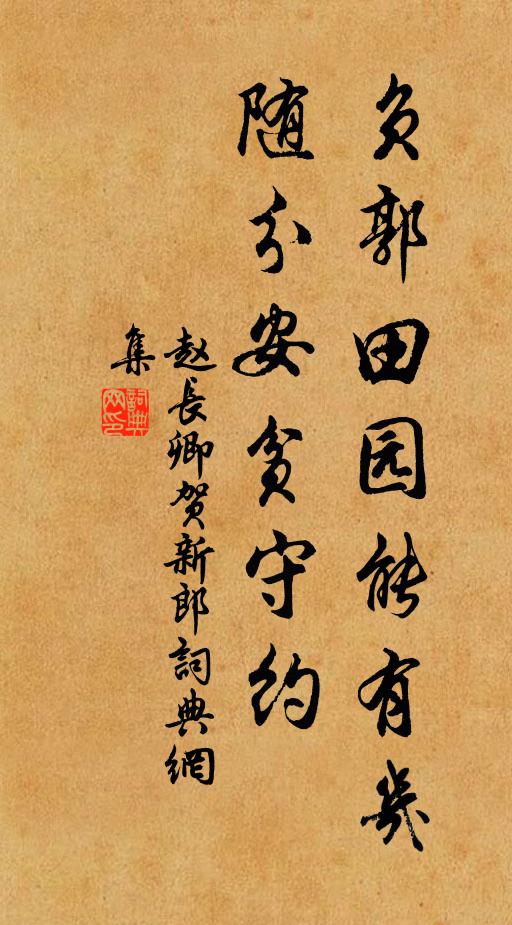 负郭田园能有几
随分安贫守约
赵长卿贺新郎詞典網
集
詞典网印